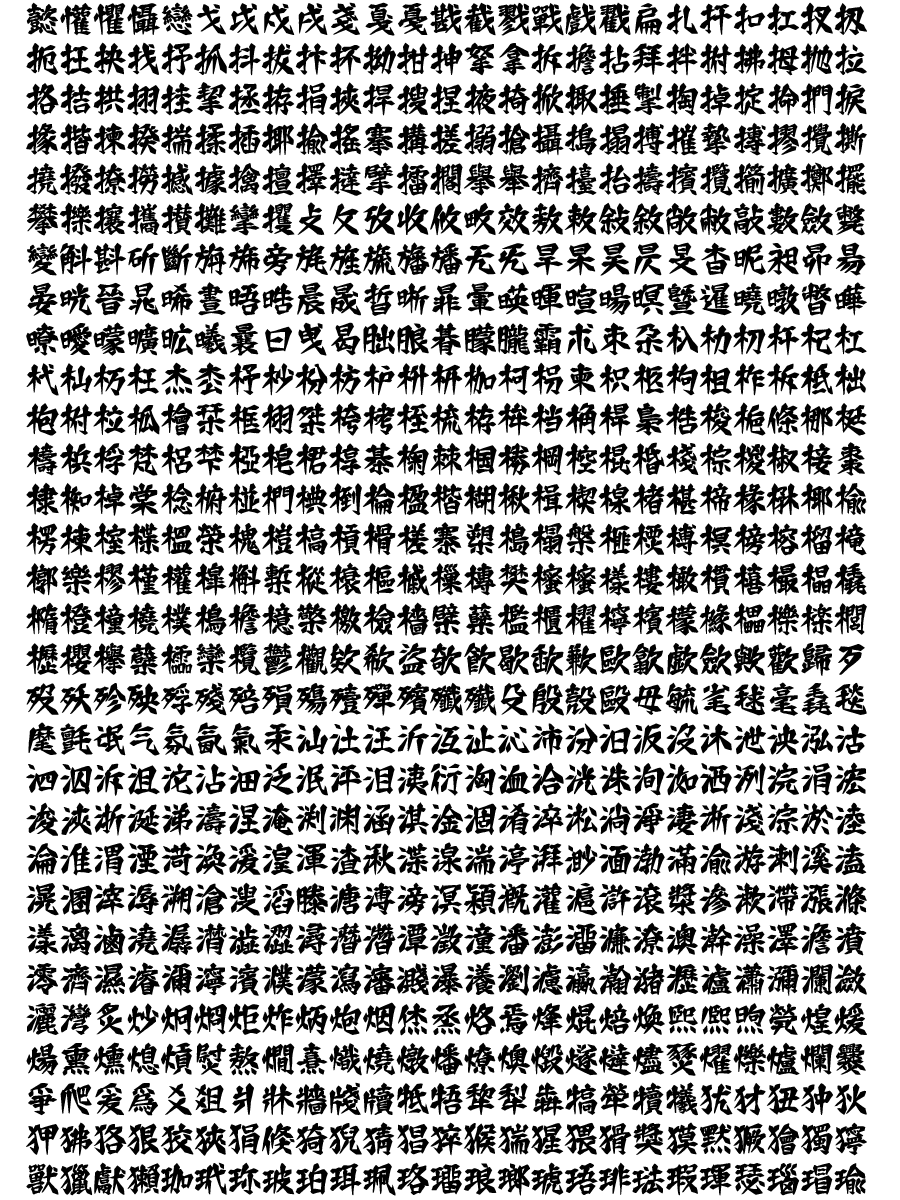 懿懽懼懾戀戈戉戍戌戔戛戞戡截戮戰戲戳扁扎扞扣扛扠扨
扼抂抉找抒抓抖拔抃抔拗拑抻拏拿拆擔拈拜拌拊拂拇抛拉
挌拮拱挧挂挈拯拵捐挾捍搜捏掖掎掀掫捶掣掏掉掟掵捫捩
掾揩揀揆揣揉插揶揄搖搴搆搓搦搶攝搗搨搏摧摯摶摎攪撕
撓撥撩撈撼據擒擅擇撻擘擂擱擧舉擠擡抬擣擯攬擶擴擲擺
攀擽攘攜攅攤攣攫攴攵攷收攸畋效敖敕敍敘敞敝敲數斂斃
變斛斟斫斷旃旆旁旄旌旒旛旙无旡旱杲昊昃旻杳昵昶昴昜
晏晄晉晁晞晝晤晧晨晟晢晰暃暈暎暉暄暘暝曁暹曉暾暼曄
暸曖曚曠昿曦曩曰曵曷朏朖朞朦朧霸朮朿朶杁朸朷杆杞杠
杙杣杤枉杰枩杼杪枌枋枦枡枅枷柯枴柬枳柩枸柤柞柝柢柮
枹柎柆柧檜栞框栩桀桍栲桎梳栫桙档桷桿梟梏梭梔條梛梃
檮梹桴梵梠梺椏梍桾椁棊椈棘椢椦棡椌棍棔棧棕椶椒椄棗
棣椥棹棠棯椨椪椚椣椡棆楹楷楜楸楫楔楾楮椹楴椽楙椰楡
楞楝榁楪榲榮槐榿槁槓榾槎寨槊槝榻槃榧樮榑榠榜榕榴槞
槨樂樛槿權槹槲槧樅榱樞槭樔槫樊樒櫁樣樓橄樌橲樶橸橇
橢橙橦橈樸樢檐檍檠檄檢檣檗蘗檻櫃櫂檸檳檬櫞櫑櫟檪櫚
櫪櫻欅蘖櫺欒欖鬱欟欸欷盜欹飮歇歃歉歐歙歔歛歟歡歸歹
歿殀殄殃殍殘殕殞殤殪殫殯殲殱殳殷殼毆毋毓毟毬毫毳毯
麾氈氓气氛氤氣汞汕汢汪沂沍沚沁沛汾汨汳沒沐泄泱泓沽
泗泅泝沮沱沾沺泛泯泙泪洟衍洶洫洽洸洙洵洳洒洌浣涓浤
浚浹浙涎涕濤涅淹渕渊涵淇淦涸淆淬淞淌淨淒淅淺淙淤淕
淪淮渭湮渮渙湲湟渾渣湫渫湶湍渟湃渺湎渤滿渝游溂溪溘
滉溷滓溽溯滄溲滔滕溏溥滂溟潁漑灌滬滸滾漿滲漱滯漲滌
漾漓滷澆潺潸澁澀潯潛濳潭澂潼潘澎澑濂潦澳澣澡澤澹濆
澪濟濕濬濔濘濱濮濛瀉瀋濺瀑瀁瀏濾瀛瀚潴瀝瀘瀟瀰瀾瀲
灑灣炙炒炯烱炬炸炳炮烟烋烝烙焉烽焜焙煥煕熙煦煢煌煖
煬熏燻熄熕熨熬燗熹熾燒燉燔燎燠燬燧燵燼燹燿爍爐爛爨
爭爬爰爲爻爼爿牀牆牋牘牴牾犂犁犇犒犖犢犧犹犲狃狆狄
狎狒狢狠狡狹狷倏猗猊猜猖猝猴猯猩猥猾獎獏默獗獪獨獰
獸獵獻獺珈玳珎玻珀珥珮珞璢琅瑯琥珸琲琺瑕琿瑟瑙瑁瑜